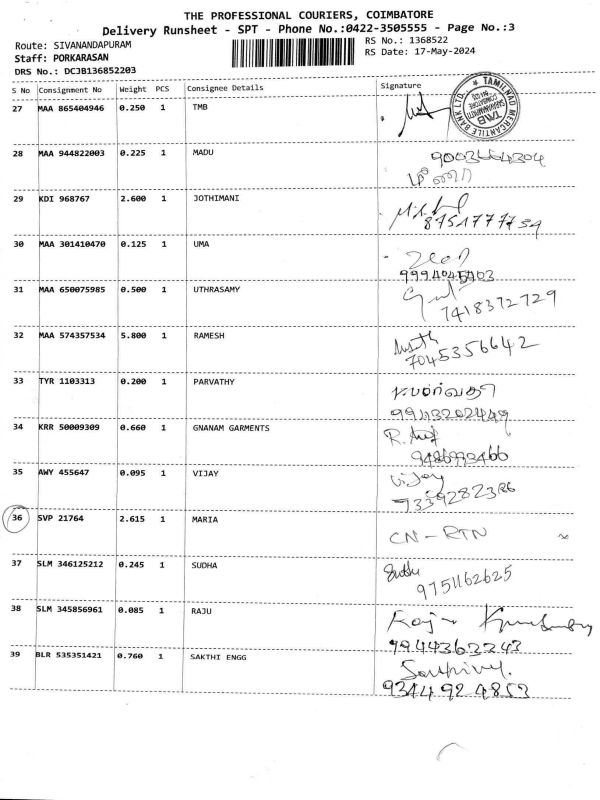 THE PROFESSIONAL COURIERS, COIMBATORE
Delivery Runsheet - SPT - Phone No.:0422-3505555 - Page No.:3
Route: SIVANANDAPURAM
RS No.: 1368522
Staff: PORKARASAN
RS Date: 17-May-2024
DRS No.: DCJB136852203
S No Consignment No Weight PCS Consignee Details Signature
27 MAA 865404946 0.250 1 TMB
TAMILNAD MERCANTILE BANK LTD.
TMB
28 MAA 944822003 0.225 1 MADU
29 KDI 968767 2.600 1 JOTHIMANI
8751777759
30 MAA 301410470 0.125 1 UMA
31 MAA 650075985 0.500 1 UTHRASAMY
7418372729
32 MAA 574357534 5.800 1 RAMESH
7045356642
33 TYR 1103313 0.200 1 PARVATHY
34 KRR 50009309 0.660 1 GNANAM GARMENTS
35 AWY 455647 0.095 1 VIJAY
Vijay
36 SVP 21764 2.615 1 MARIA CN - RTN
37 SLM 346125212 0.245 1 SUDHA
9751162625
38 SLM 345856961 0.085 1 RAJU
9944363243
39 BLR 535351421 0.760 1 SAKTHI ENGG
9344924853